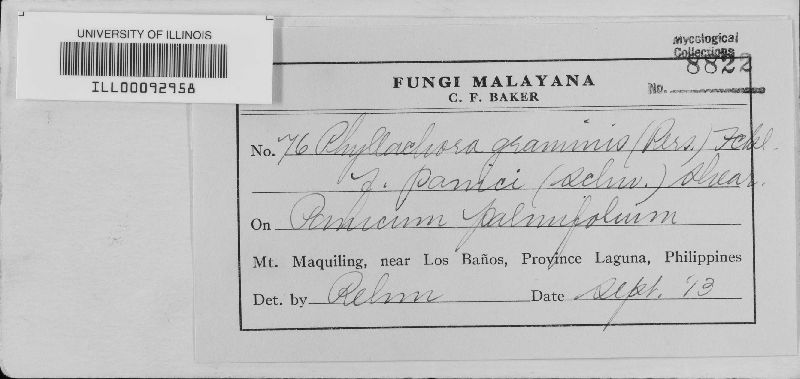 UNIVERSITY OF ILLINOIS
ILL00092958
Mycological
Collections
No. 8822
FUNGI MALAYANA
C. F. BAKER
No. 76 Phyllachora graminis (Pers.) Fckl.
f. panici (Schw.) Shear.
On Panicum palmifolium
Mt. Maquiling, near Los Baños, Province Laguna, Philippines
Det. by Rehm Date Sept. '13